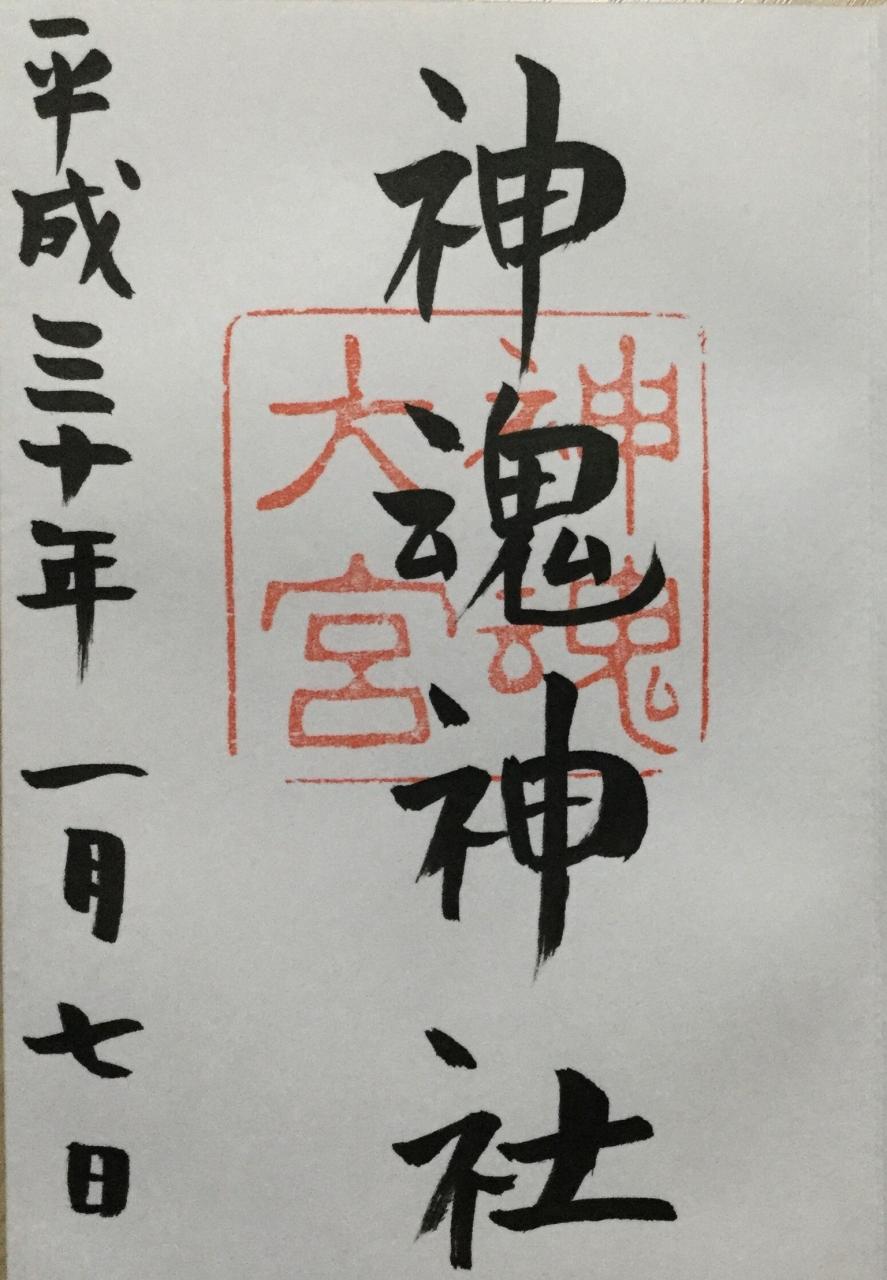 神魂神社
神魂
大宮
平成三十年 一月七日